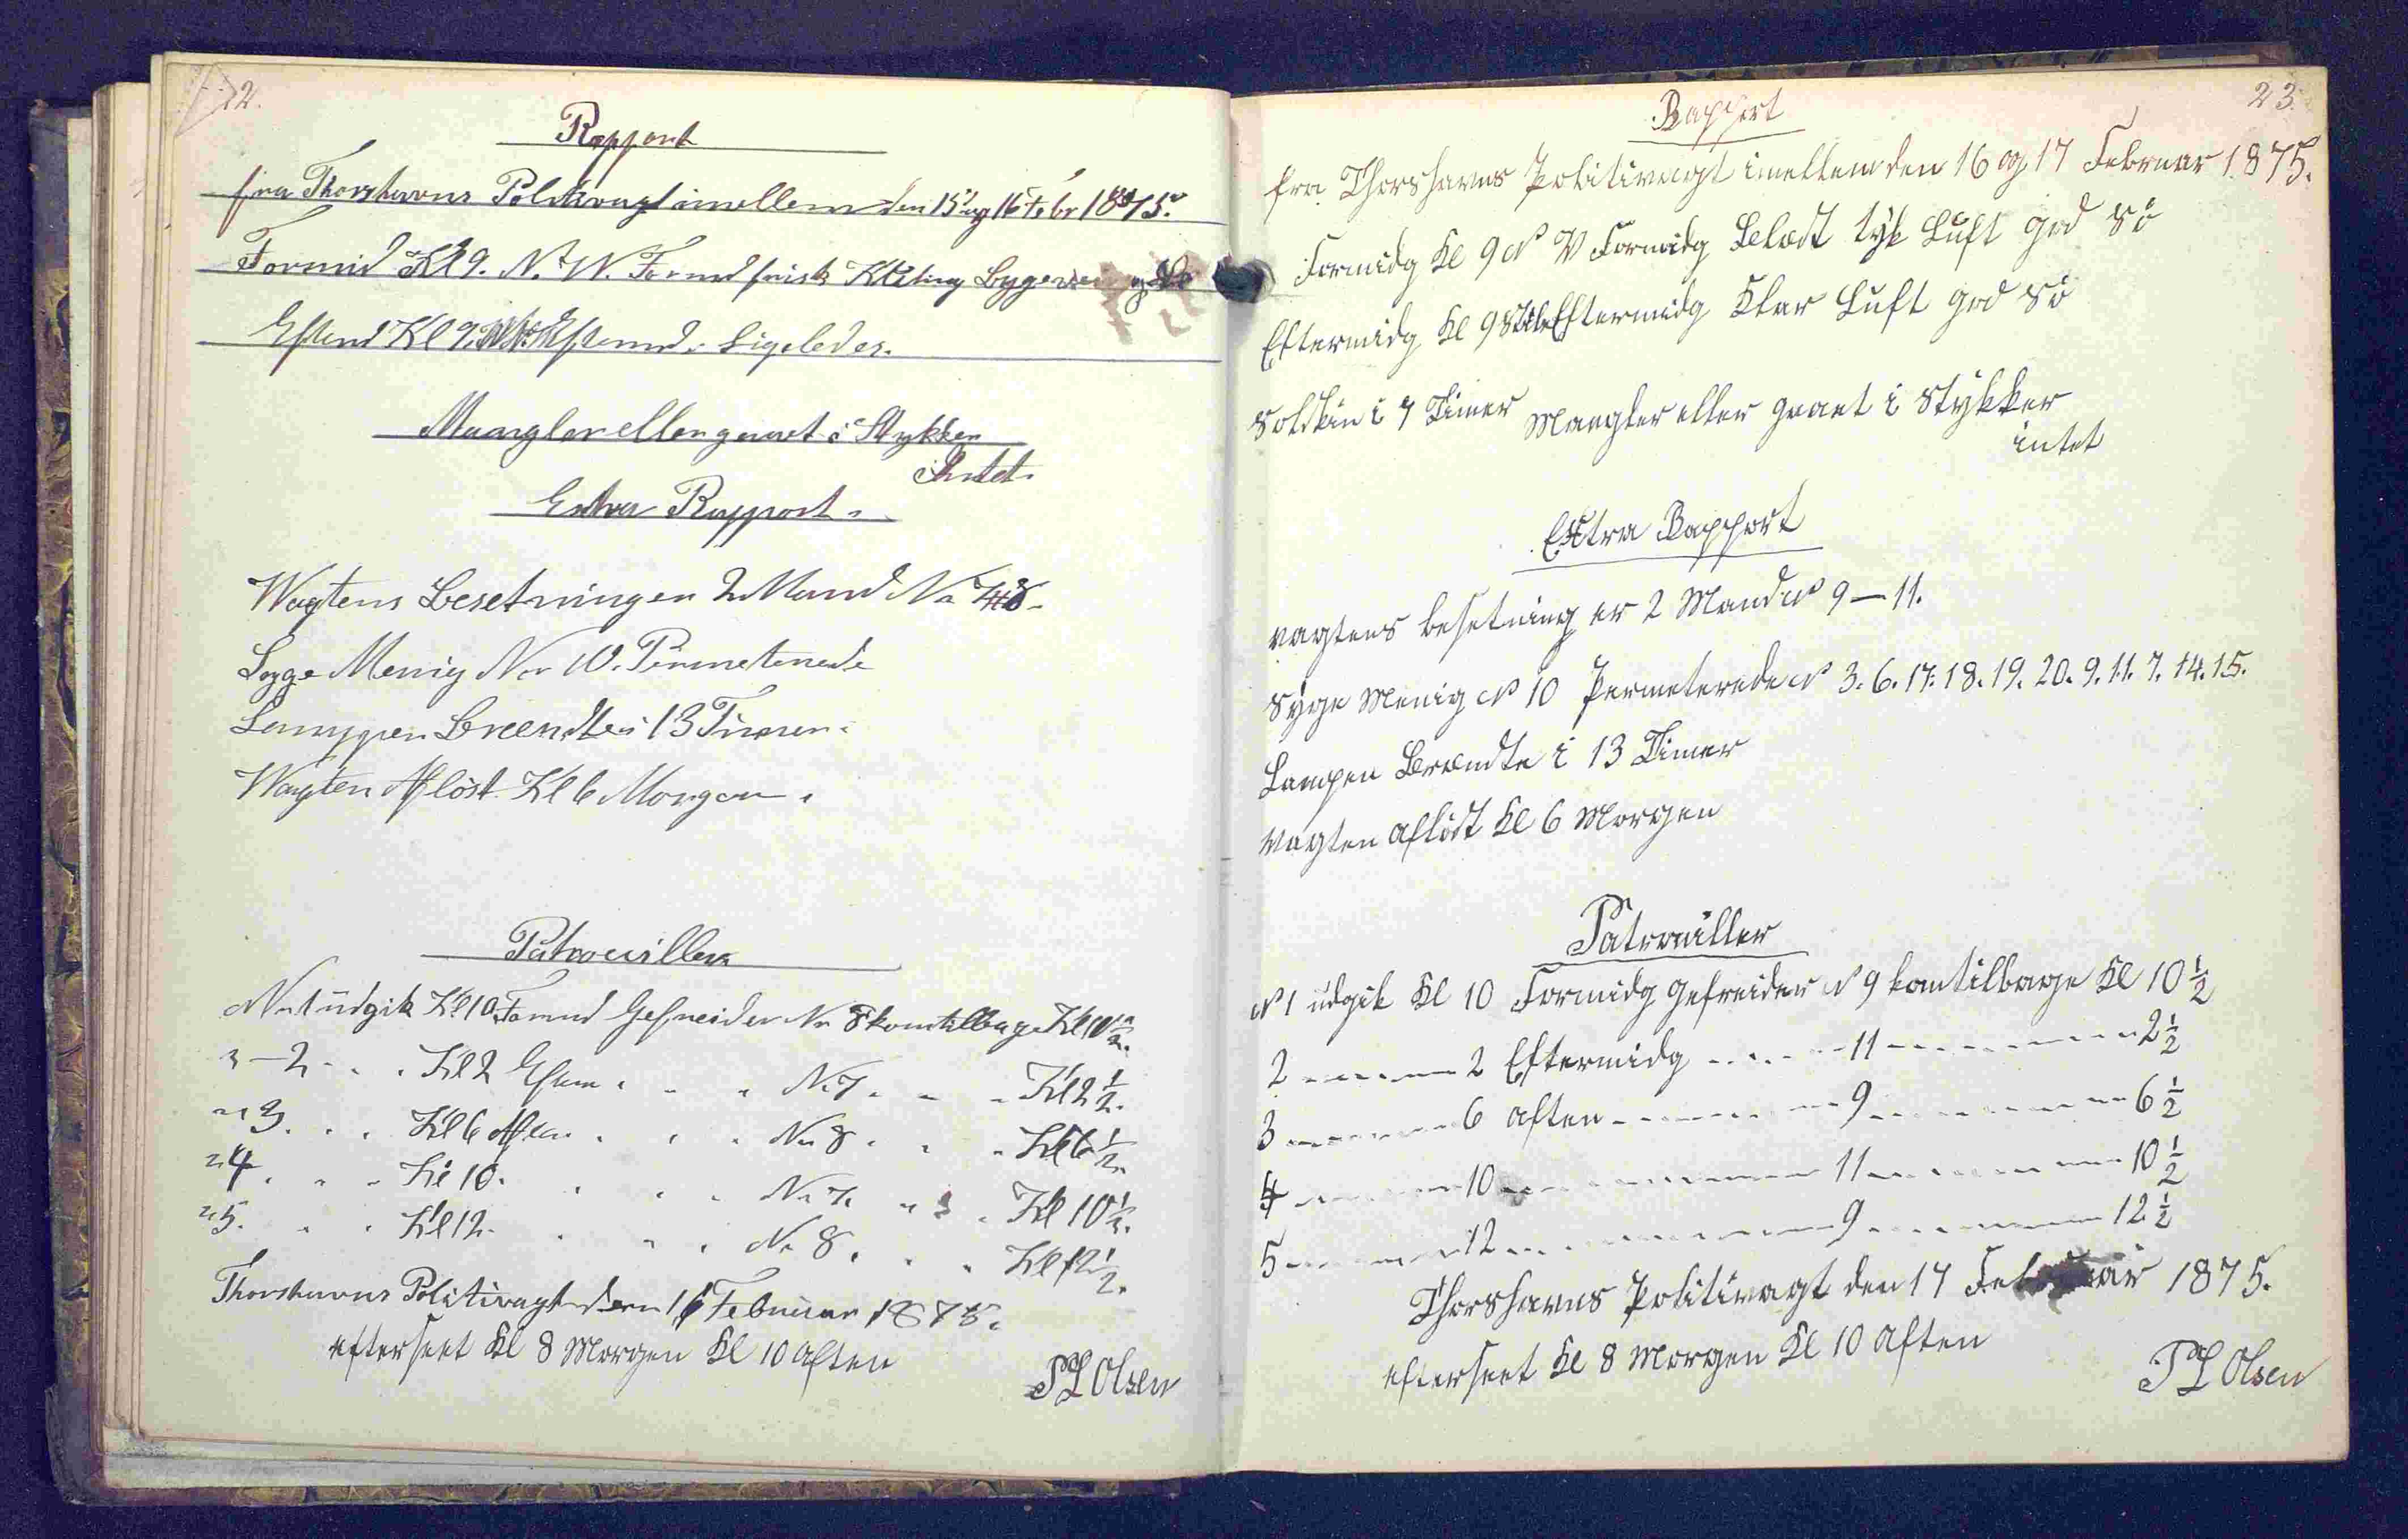 22.
Rapport
fra Thorshavns Politivagt imellem den 15 og 16 Febr 1875.
Formid Kl 9. N. W. Formd frisk Kuling Bygeveir
Eftmd Kl 9. Eftermd. Ligeledes.
Mangler eller gaaet i Stykker
Intet.
Extra Rapport.
Wagtens Besetning er 2 Mand No 7 8.
Syge Menig No 10. Permeterede
Lampen Brændte i 13 Timer.
Wagten Afløst Kl 6 Morgen.
Patrouiller
No 1 udgik Kl 10 Formd Gefreider No 8 kom tilbage Kl 10 1/2.
" - 2 - . . Kl 2 Eftm . . . No 7 . . . Kl 2 1/2.
" 3 . . . Kl 6 Aften . . . No 8 . . . Kl 6 1/2.
" 4 . . . Kl 10 . . . . No 7 . . . Kl 10 1/2.
" 5 . . . Kl 12 . . . . No 8 . . . Kl 12 1/2.
Thorshavns Politivagt den 16 Februar 1875.
efterseet Kl 8 Morgen Kl 10 Aften
P L Olsen
23.
Rapport
fra Thorshavns Politivagt imellem den 16 og 17 Februar 1875.
Formidg Kl 9 N V Formidg Belædt tyk Luft god Sö
Eftermidg Kl 9 Stile Eftermidg Klar Luft god Sö
Solskin i 7 Timer Mangler eller gaaet i Stykker
intet
Extra Rapport
vagtens besetning er 2 Mand No 9 — 11.
Syge Menig No 10 Permeterede No 3. 6. 17. 18. 19. 20. 9. 11. 7. 14. 15.
Lampen Brændte i 13 Timer
Vagten aflöst Kl 6 Morgen
Patrouiller
No 1 udgik Kl 10 Formidg Gefreider No 9 kom tilbage Kl 10 1/2
2 - - - - - 2 Eftermidg - - - - - 11 - - - - - - - 2 1/2
3 - - - - - 6 aften - - - - - - - 9 - - - - - - - 6 1/2
4 - - - - - 10 - - - - - - - - - 11 - - - - - - - 10 1/2
5 - - - - - 12 - - - - - - - - - 9 - - - - - - - 12 1/2
Thorshavns Politivagt den 17 Februar 1875.
efterseet Kl 8 Morgen Kl 10 Aften
P L Olsen